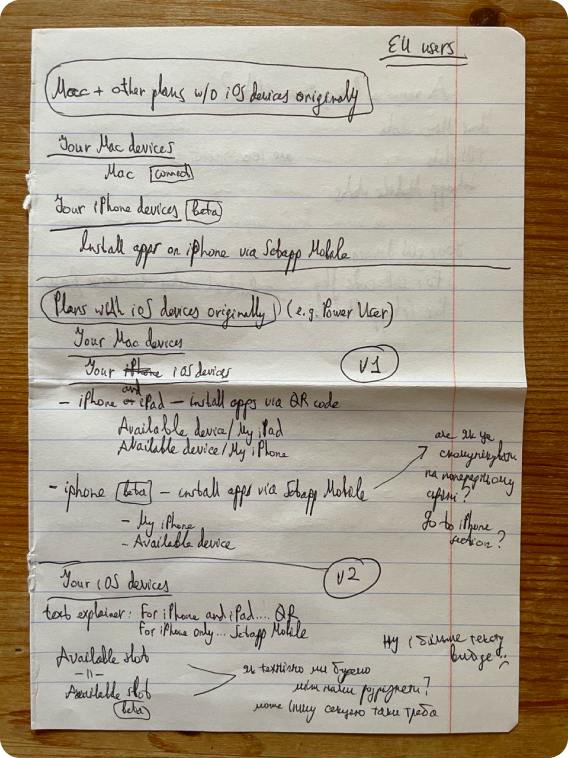 EU users
Mac + other plans w/o iOS devices originally
Your Mac devices
Mac connect
Your iPhone devices beta
Install apps on iPhone via Setapp Mobile
Plans with iOS devices originally (e.g. Power User)
Your Mac devices
V1
Your iPhone iOS devices
and
- iPhone or iPad - install apps via QR code
Available device / My iPad
Available device / My iPhone
- iphone beta - install apps via Setapp Mobile
- My iPhone
- Available device
але як це
скомунікувати
на попередньому
скріні?
go to iPhone
section?
V2
Your iOS devices
text explainer: For iPhone and iPad.... QR
For iPhone only... Setapp Mobile
Available slot
-||-
Available slot
beta
Ну і більше тексту
як технічно ми будемо
між ними розрізняти?
може іншу секцію таки треба